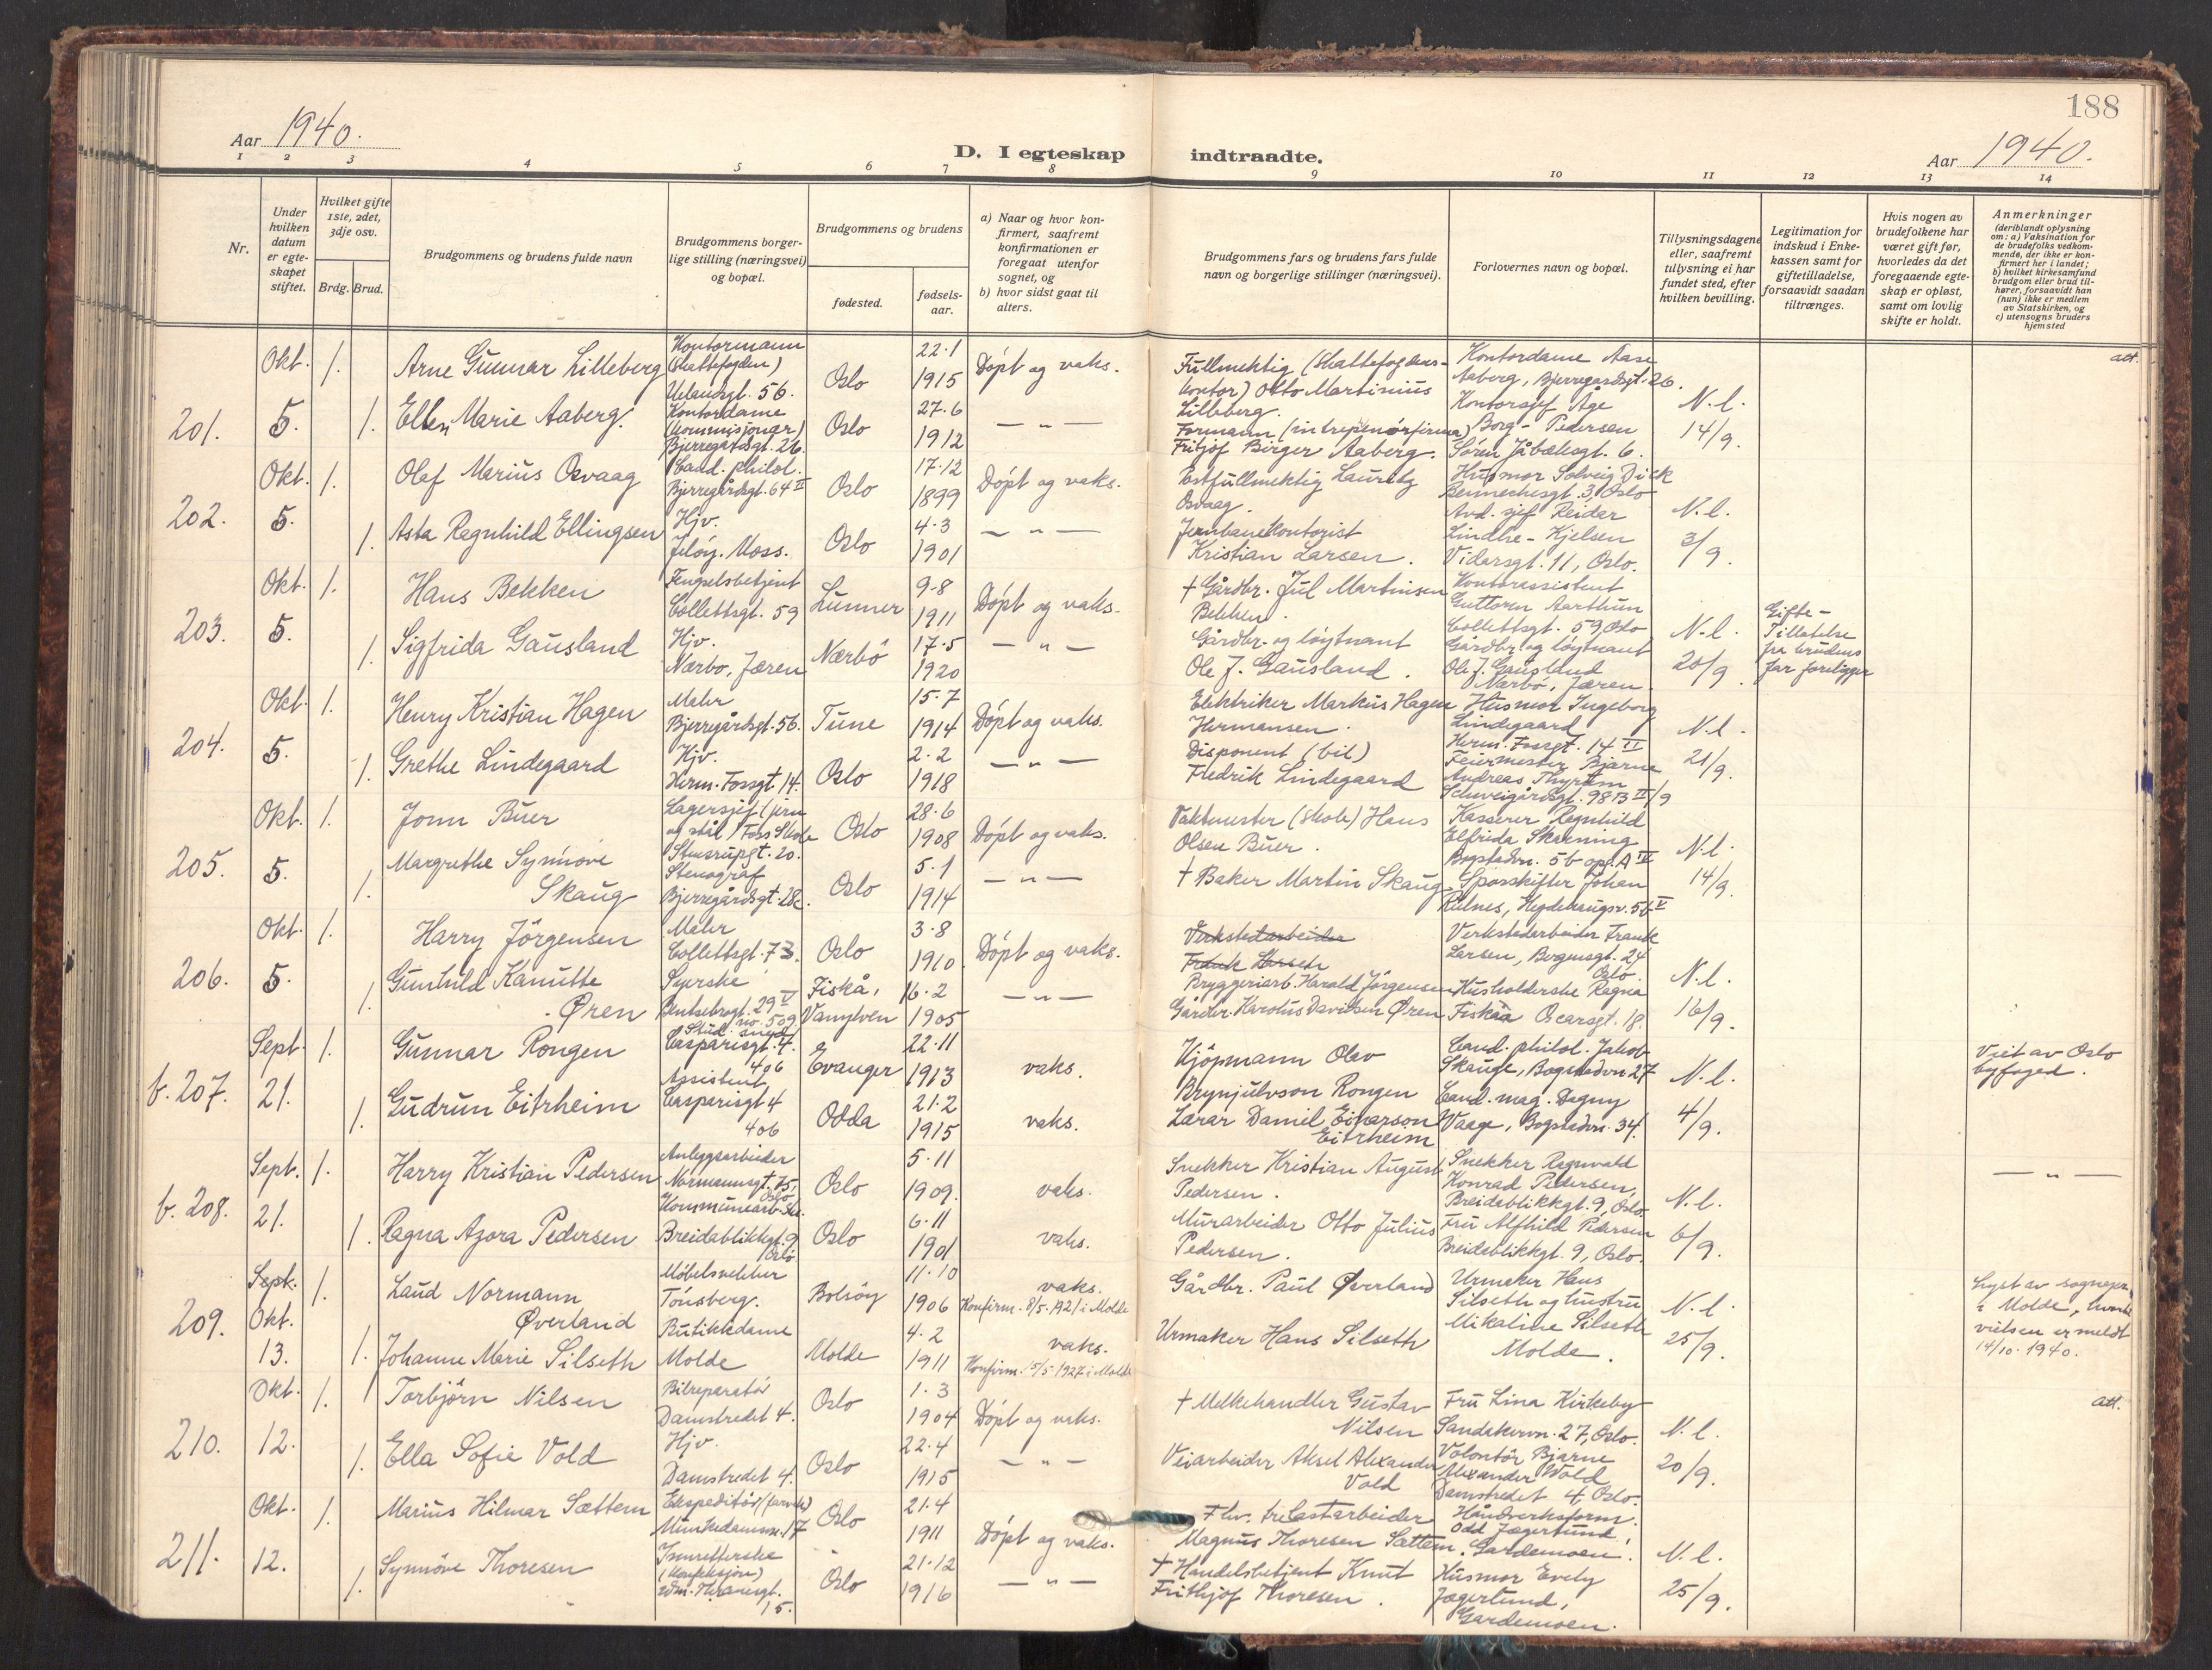 188
Aar 1940.
D. I egteskap indtraadte.
Aar 1940.
1 2 3 4 5 6 7 8 9 10 11 12 13 14
Nr.
Under hvilken datum er egteskapet stiftet.
Hvilket gifte 1ste, 2det, 3dje osv.
Brdg. Brud.
Brudgommens og brudens fulde navn
Brudgommens borgerlige stilling (næringsvei) og bopæl.
Brudgommens og brudens
fødested.
fødselsaar.
a) Naar og hvor konfirmert, saafremt konfirmationen er foregaat utenfor sognet, og
b) hvor sidst gaat til alters.
Brudgommens fars og brudens fars fulde navn og borgerlige stillinger (næringsvei).
Forlovernes navn og bopæl.
Tillysningsdagene eller, saafremt tillysning ei har fundet sted, efter hvilken bevilling.
Legitimation for indskud i Enkekassen samt for giftetilladelse, forsaavidt saadan tiltrænges.
Hvis nogen av brudefolkene har været gift før, hvorledes da det foregaaende egteskap er opløst, samt om lovlig skifte er holdt.
Anmerkninger (deriblandt oplysning om: a) Vaksination for de brudefolks vedkommende, der ikke er konfirmert her i landet; b) hvilket kirkesamfund brudgom eller brud tilhører, forsaavidt han (hun) ikke er medlem av Statskirken, og c) utensogns bruders hjemsted
201. Okt. 5. 1. Arne Gunnar Lilleberg
Kontormann (Skattefogden) Uelandsgt. 56.
Oslo 22.1 1915 Døpt og vaks.
Fullmektig (Skattefogdens kontor) Otto Martinius Lilleberg.
Kontordame Aase Aaberg, Bjerregårdsgt. 26.
1. Ellen Marie Aaberg.
Kontordame (kommisjonær) Bjerregårdsgt. 26
Oslo 27.6 1912 — „ —
Formann (intrepenørfirma) Fritjof Birger Aaberg.
Kontorsjef Åge Borg-Pedersen Sören Jåbæksgt. 6.
N.l. 14/9.
att.
202. Okt. 5. 1. Olaf Marius Osvaag
Cand. philol. Bjerregårdsgt. 64 II
Oslo 17.12 1899 Døpt og vaks.
Postfullmektig Lauritz Osvaag.
Husmor Solveig Dick Bennechesgt. 3, Oslo
1. Asta Ragnhild Ellingsen
Hjv. Jeløy. Moss.
Oslo 4.3 1901 — „ —
Jernbanekontorist Kristian Larsen.
Avd. sjef Reidar Lindhe-Kjelsen Vidarsgt. 11, Oslo.
N.l. 3/9
203. Okt. 5. 1. Hans Bekken
Fengselsbetjent Collettsgt. 59
Lunner 9.8 1911 Døpt og vaks.
+ Gårdbr. Jul Martinisen Bekken.
Kontorassistent Guttorm Aarthun Collettsgt. 59 Oslo
1. Sigfrida Gausland
Hjv. Nærbø, Jæren
Nærbø 17.5 1920 — „ —
Gårdbr. og løytnant Ole J. Gausland.
Gårdbr. og løytnant Ole J. Gausland Nærbø, Jæren.
N.l. 20/9
Gifte-Tillatelse fra brudens far foreligger
204. Okt. 5. 1. Henry Kristian Hagen
Maler Bjerregårdsgt. 56.
Tune 15.7 1914 Døpt og vaks.
Elektriker Markus Hagen Hermansen.
Husmor Ingeborg Lindegaard Herm. Fossgt. 14 II
1. Grethe Lindegaard
Hjv. Herm. Fossgt 14.
Oslo 2.2 1918 — „ —
Disponent (bil) Fredrik Lindegaard
Feiermester Bjarne Andreas Thyrum Schweigårdsgt. 98 B II/9
N.l. 21/9.
205. Okt. 5. 1. Jonn Buer
Lagersjef (jern og stål) Foss Skole Stensrupgt. 20.
Oslo 28.6 1908 Døpt og vaks.
Vaktmester (skole) Hans Olsen Buer.
Kasserer Ragnhild Elfrida Skarning Bogstadvn. 5b opg. A IV
1. Margrethe Synnøve Skaug
Stenograf Bjerregårdsgt. 28c.
Oslo 5.1 1914 — „ —
+ Baker Martin Skaug
Sporskifter Johan Relnes, Hegdehaugsv. 5b V
N.l. 14/9.
206. Okt. 5. 1. Harry Jörgensen
Maler Collettsgt. 73.
Oslo 3.8 1910 Døpt og vaks.
Verkstedarbeider Frank Larsen
Bryggeriarb. Harald Jörgensen
Verkstedarbeider Frank Larsen, Bogensgt. 24 Oslo.
1. Gunhild Kamutte Øren
Syerske Bentsebrogt. 29 V no. 509
Fiskå, Vanylven 16.2 1905 — „ —
Gårdbr. Karolus Davidsen Øren Fiskåa
Husholderske Ragna Oscarsgt. 18.
N.l. 16/9.
b. 207. Sept. 21. 1. Gunnar Rongen
Stud. Casparisgt. 4. 406
Evanger 22.11 1913 vaks.
Kjöpmann Olav Brynjulvson Rongen
Cand. philol. Jakob Skauge, Bogstadvn. 27
1. Gudrun Eitrheim
Assistent, Casparisgt 4 406
Odda 21.2 1915 vaks.
Lærar Daniel Einarson Eitrheim
Cand. mag. Dagny Vaage, Bogstadvn. 34.
N.l. 4/9.
Viet av Oslo byfoged.
b. 208. Sept. 21. 1. Harry Kristian Pedersen
Anleggsarbeider Normannsgt. 75, Oslo
Oslo 5.11 1909. vaks.
Snekker Kristian August Pedersen.
Snekker Ragnvald Konrad Pedersen, Breidablikkgt. 9, Oslo.
1. Ragna Azora Pedersen
Kommunearb.ske. Breidablikkgt. 9 Oslo
Oslo 6.11 1901 vaks.
Murarbeider Otto Julius Pedersen.
Fru Alfhild Pedersen Breidablikkgt. 9, Oslo.
N.l. 6/9.
— „ —
209. Sept. Okt. 13. 1. Laud Normann Øverland
Møbelsnekker Tönsberg.
Bolsöy 11.10 1906 vaks. Konfirm. 8/5-1921 i Molde
Gårdbr. Paul Øverland
Urmaker Hans Silseth og hustru Mikaline Silseth Molde.
1. Johanne Marie Silseth
Butikkdame Molde
Molde 4.2 1911 vaks. Konfirm. 15/5 1927 i Molde
Urmaker Hans Silseth
N.l. 25/9.
Lyst av sognepr. i Molde, hvortil vielsen er meldt 14/10. 1940.
210. Okt. 12. 1. Torbjörn Nilsen
Bilreparatör Damstredet 4.
Oslo 1.3 1904 Døpt og vaks.
+ Melkehandler Gustav Nilsen
Fru Lina Kirkeby Sandakervn. 27, Oslo.
1. Ella Sofie Vold
Hjv. Damstredet 4.
Oslo 22.4 1915 — „ —
Veiarbeider Aksel Alexander Vold
Volontör Bjarne Alexander Vold Damstredet 4, Oslo.
N.l. 20/9.
att.
211. Okt. 12. 1. Marius Hilmar Sættem
Ekspeditör Munkedamsv. 17
Oslo 21.4 1911 Døpt og vaks.
trelastarbeider Magnus Thoresen Sættem.
Håndverksform. Odd Jægertund, Gardemoen.
1. Synnöve Thoresen
(konfeksjon) Edm. 15.
Oslo 21.12 1916 — „ —
+ Handelsbetjent Knut Frithjof Thoresen.
Husmor Evely Jægertund, Gardemoen.
N.l. 25/9.